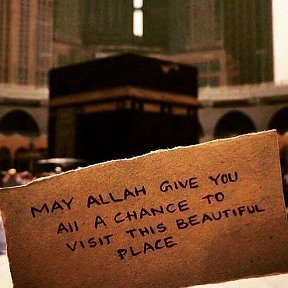 MAY ALLAH GIVE YOU
All A CHANCE TO
VISIT THIS BEAUTIFUL
PLACE